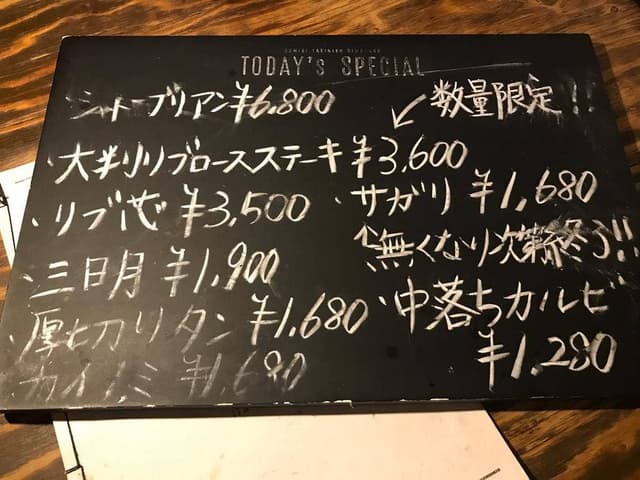 TODAY's SPECIAL
・シャトーブリアン ¥6,800
数量限定!!
・大判リブロースステーキ ¥3,600
・リブ芯 ¥3,500
・サガリ ¥1,680
↑無くなり次第終了!!
・三日月 ¥1,900
・厚切りタン ¥1,680
・中落ちカルビ
¥1,280
カイノミ ¥1,680